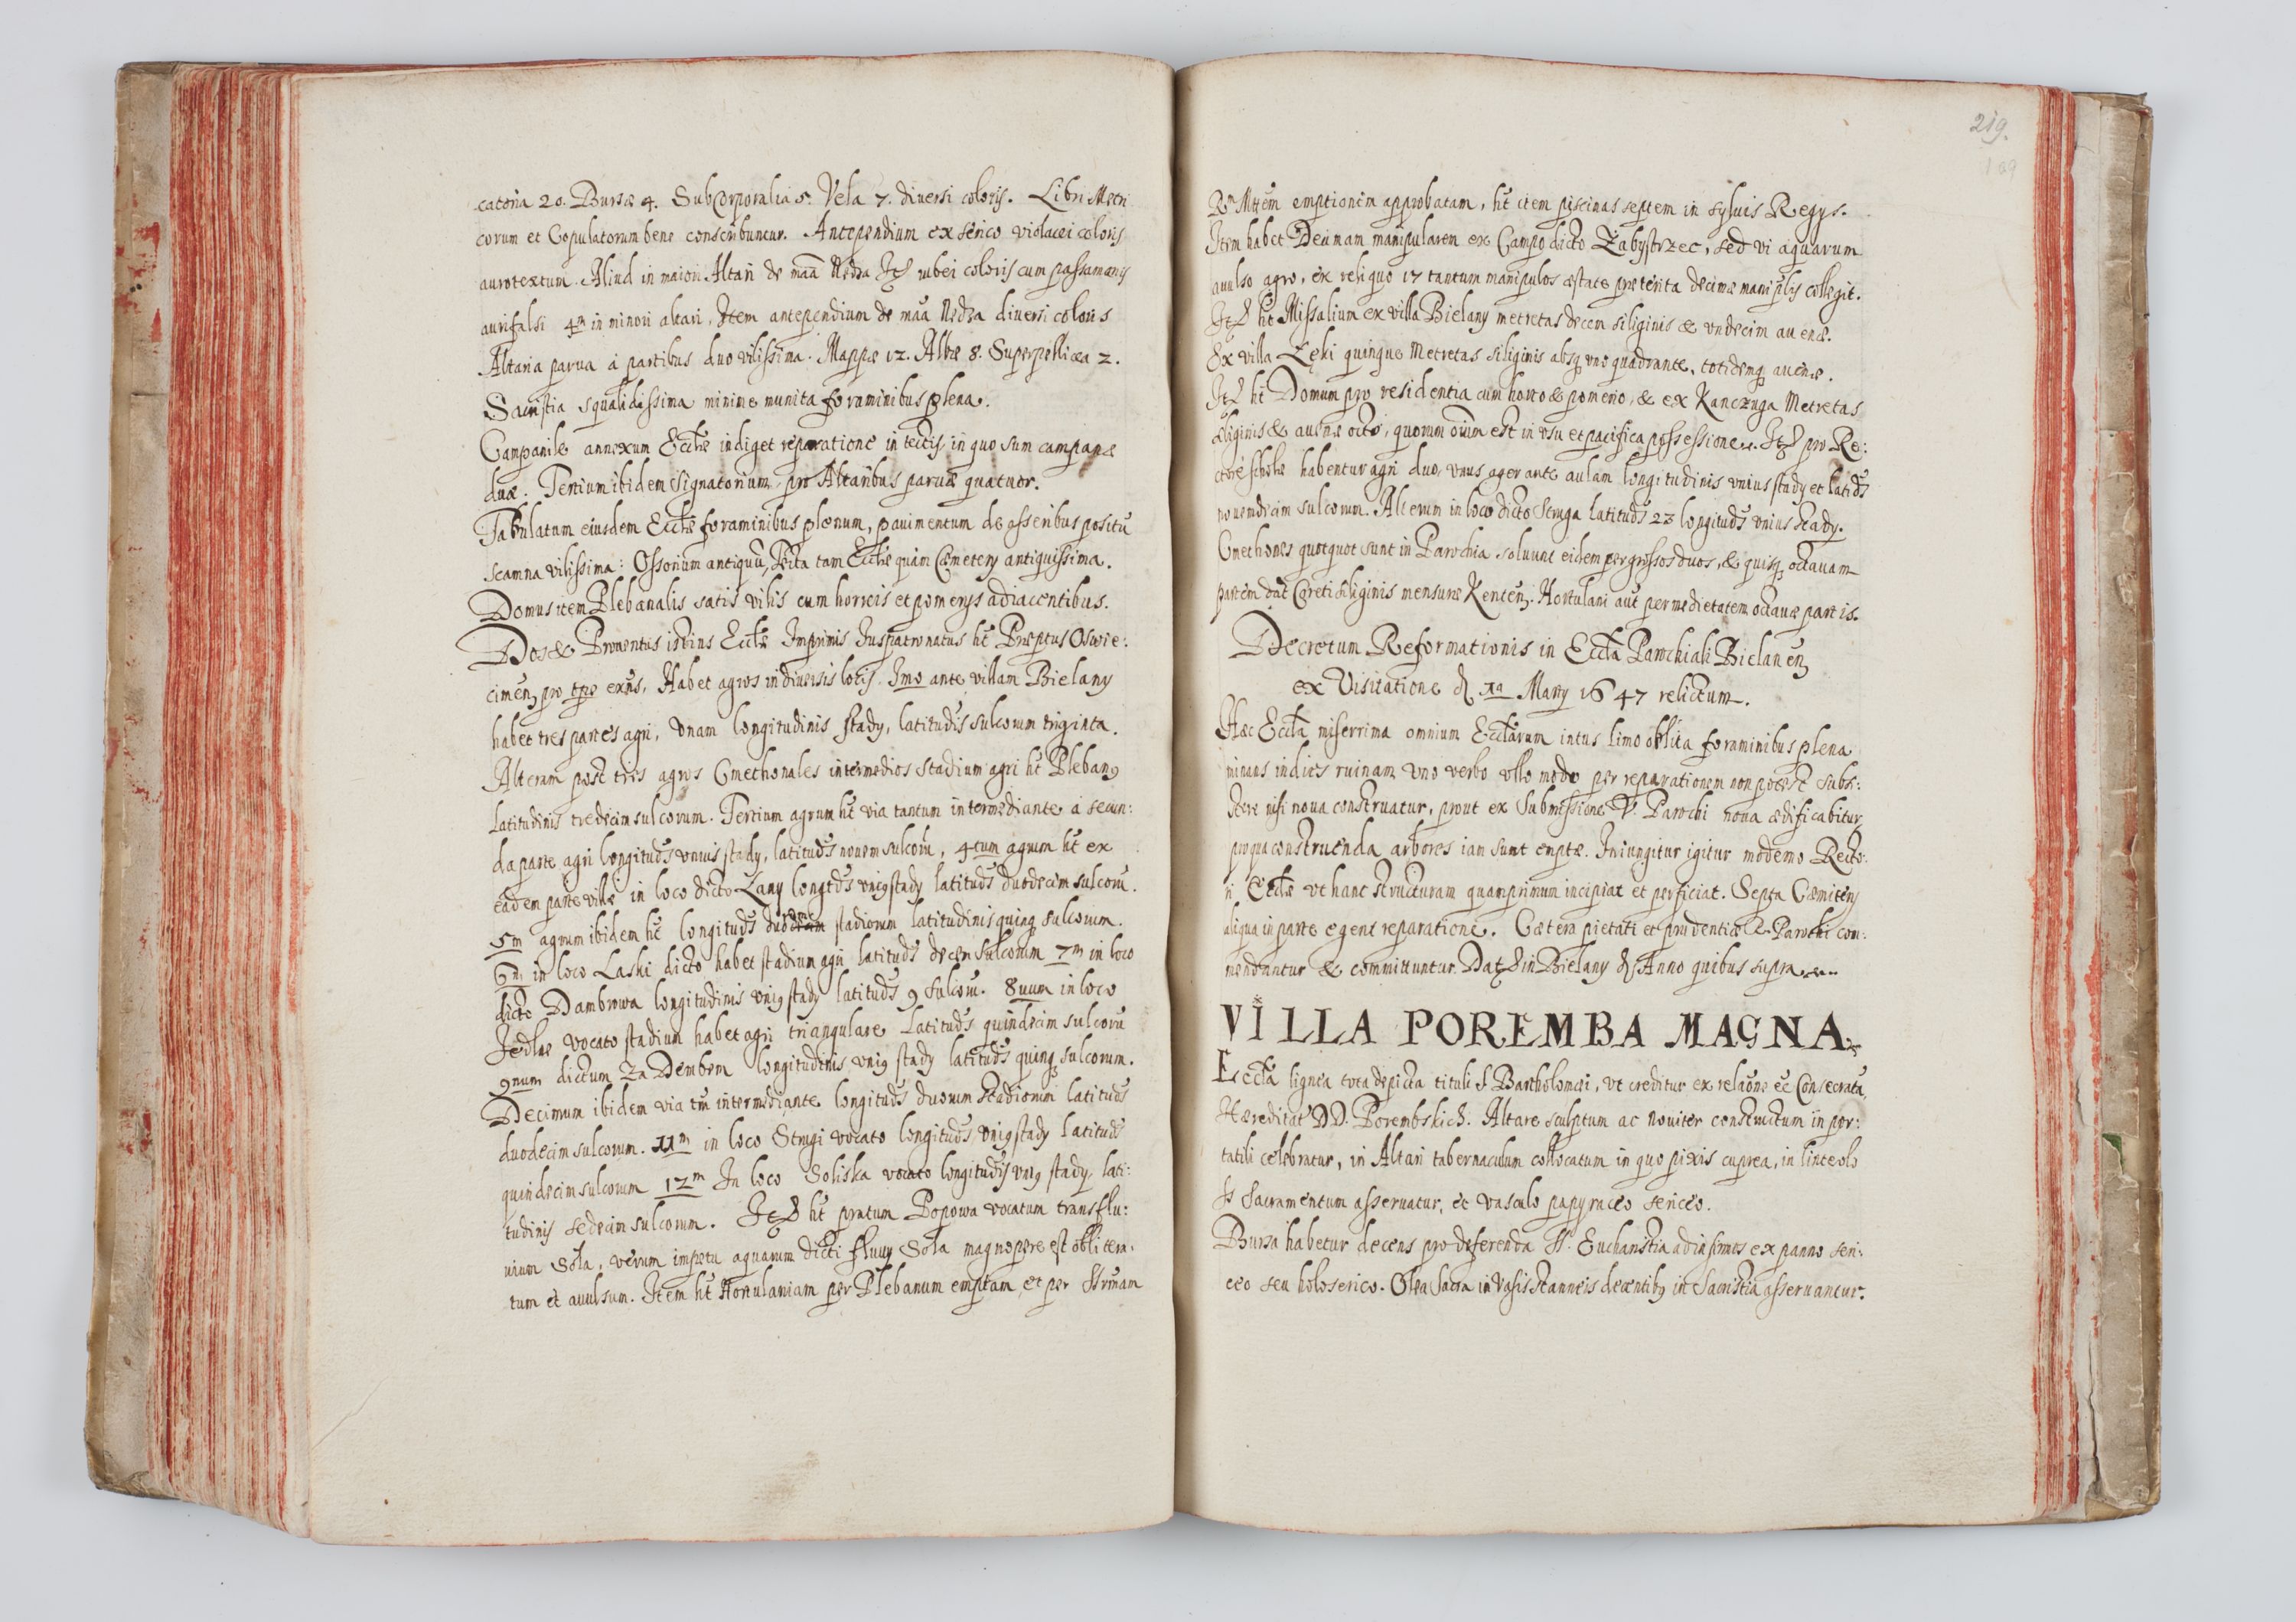 catoria 20. Bursæ 4. SubCorporalia 5. Vela 7. diuersi coloris. Libri Metri
corum et Copulatorum bene conscribuntur. Antependium ex serico violacei coloris
aurotextum. Aliud in maiori Altari de maa Nedza rubei coloris cum passamanys
aurifalsi 4m in minori altari, Item antependium de maa Nedza diuersi coloris
Altaria parua à partibus duo vilissima. Mappæ 12. Albæ 8. Superpelliæa 2.
Sacristia squalidissima minime munita foraminibus plena.
Campanile annexum Ecctæ indiget reparatione in tectis, in quo sum campanæ
duæ. Tertium ibidem Signatorium, pro Altaribus paruæ quatuor.
Tabulatum eiusdem Ecctæ foraminibus plenum, pauimentum de asseribus positu
scamna vilissima: Ossorium antiquũ, tam Ecctæ quàm Cæmeterÿ antiquissima.
Domus item Plebanalis satis vilis cum horreis et pomerys adiacentibus.
Dos & Prouentus istius Ecctæ Imprimis Juspatronatus ht Præptus Oswie:
cimen, pro tpe exñs, Habet agros in diuersis locis. Imo ante villam Bielany
habet tres partes agri, Vnam longitudinis stadÿ, latitudis sulcorum triginta.
Alteram post tres agros Cmethonales intermedios stadium agri ht Pleban9
Latitudinis tredecim sulcorum. Tertium agrum ht via tantum intermediante à secun:
da parte agri longituds vnius stadÿ, latituds nouem sulcorũ, 4tum agrum ht ex
eadem parte villæ in loco dicto Lany longtds vni9 stadÿ latituds duodecim sulcorũ.
5m agrum ibidem ht longituds stadiorum latitudinis quinq sulcorum.
6m in loco Laski dicto habet stadium agri latituds decem sulcorum 7m in loco
dicto Dambrowa longitudinis vni9 stadÿ latituds 9 sulcorũ. 8uum in loco
Jedlæ vocato stadium habet agri triangulare Latituds quindecim sulcorũ
9num dictum Za Dembem longitudinis vni9 stadÿ latituds quinq sulcorum.
Decimum ibidem via tm intermediante longituds duorum stadiorum latituds
duodecim sulcorum. 11m in loco Strugi vocato longituds vni9 stadÿ latituds
quindecim sulcorum 12m In loco Soliska vocato longituds vni9 stadÿ, lati:
tudinis sedecim sulcorum. ht pratum Popowa vocatum transflu:
uium Sola, verum impetu aquarum dicti fluuÿ Sola magnopere est obliteri:
tum et auulsum. Item ht Hortulaniam per Plebanum emptam et per
219.
emptionem approbatam, ht item piscinas septem in syluis Regÿs.
Item habet Decimam manipularem ex Campo dicto Zabystrzec, sed vi aquarum
auulso agro, ex reliquo 17 tantum manipulos æstate præterita decimæ maniplis collegit.
ht Missalium ex villa Bielany metretas decem siliginis & vndecim auenæ.
Ex villa Łęki quinque Metretas siliginis absq vno quadrante, totidemq auenæ.
ht Domum pro residentia cum horto & pomerio, & ex Kanczuga Metretas
siliginis & auenæ octo, quorum oium est in vsu et pacifica possessione. pro Re:
ctore scholæ habentur agri duo, vnus ager ante aulam longitudinis vnius stadÿ et latids
nouemdecim sulcorum. Alterum in loco dicto Struga latituds 23 longituds vnius stadÿ.
Cmethones quotquot sunt in Parochia soluunt eidem per grossos duos, & quisq octauam
partem dat Coreti siliginis mensuræ Kenten. Hortulani aut per medietatem octauæ partis.
Decretum Reformationis in Eccta Parochiali Bielanen
ex Visitatione d. 1a Marÿ 1647 relictum.
Hæc Eccta miserrima omnium Ecctarum intus limo oblita foraminibus plena
minans indies ruinam vno verbo vllo modo per reparationem non potest subs:
tere nisi noua construatur, prout ex Submissione V. Parochi noua ædificabitur,
pro qua construenda arbores iam sunt emptæ. Iniungitur igitur moderno Recto:
ri Ecctæ vt hanc structuram quamprimum incipiat et perficiat. Septa Cæmiterÿ
aliqua in parte egent reparatione. Cætera pietati et prudentiæ Parochi com:
mendantur & committuntur. Dat in Bielany Anno quibus supra
VILLA POREMBA MAGNA
Eccta lignea tota depicta tituli S Bartholomæi, vt creditur ex relaone ec Consecrata,
Hæreditat DD. Porembskich. Altare sculptum ac nouiter constructum in por:
tatili celebratur, in Altari tabernaculum collocatum in quo pixis cuprea, in linteolo
Ss Sacramentum asseruatur, et vasculo papyraceo sericeo.
Bursa habetur decens pro deferenda SS. Eucharistia ad infirmos ex panno seri:
ceo seu holoserico. Olea Sacra in vasis stanneis decentib9 in Sacristia asseruantur.